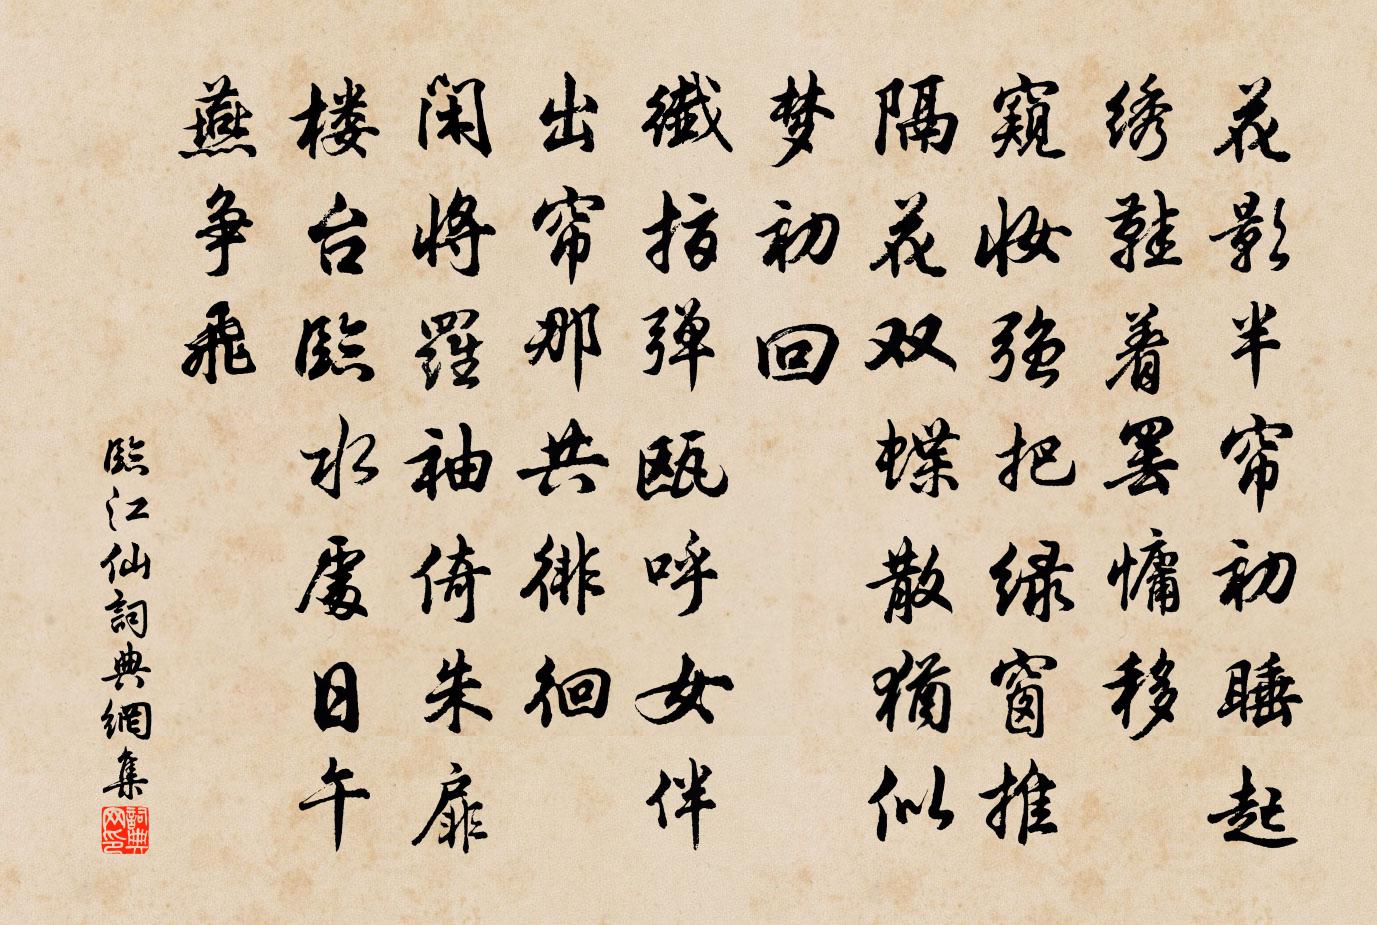 花影半帘初睡起
绣鞋着罢慵移
窥妆强把绿窗推
隔花双蝶散犹似
梦初回
纖指弹瓯呼女伴
出帘那共徘徊
闲将羅袖倚朱扉
楼台臨水處日午
燕争飛
臨江仙詞典網集
詞典网印